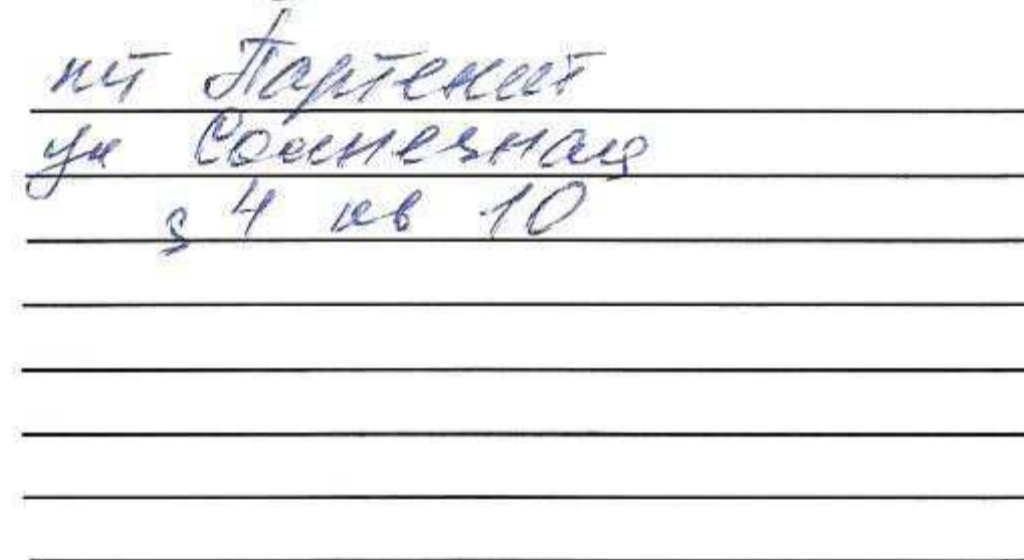 пгт Партенит
ул Солнечная
д 4 кв 10